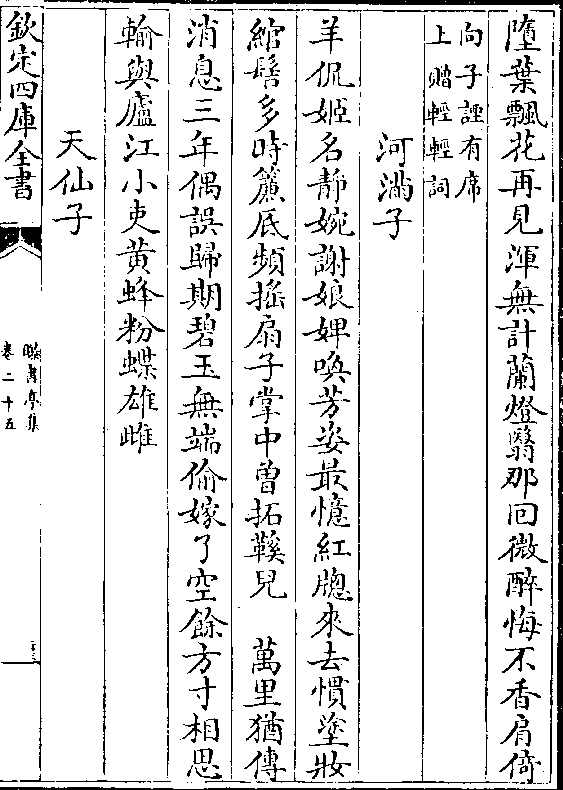 墮葉飄花再見渾無計蘭燈翳那囘微醉悔不香肩倚
向子諲有席
上贈輕輕詞
河滿子
羊侃姬名靜婉謝娘婢喚芳姿最憶紅牕來去慣塗妝
綰髻多時簾底頻搖扇子掌中曾拓鞵兒　萬里猶傳
消息三年偶誤歸期碧玉無端偷嫁了空餘方寸相思
輸與廬江小吏黃蜂粉蝶雄雌
天仙子
欽定四庫全書
曝書亭集
卷二十五